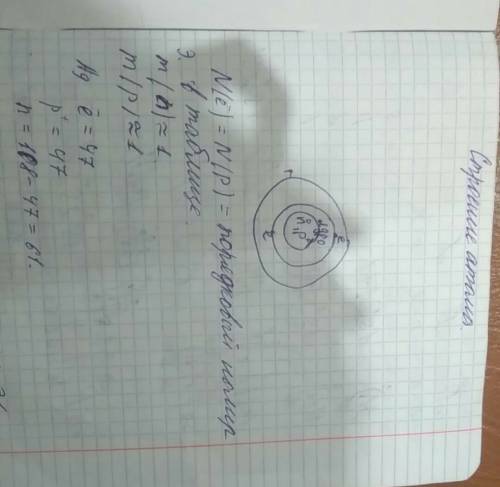 Строение атома.
ядро
n
p
ē
ē
N(ē) = N(p) = порядковый номер
э. в таблице.
m(n) ≈ 1
m(p) ≈ 1
Ag ē = 47
p⁺ = 47
n = 108 - 47 = 61.